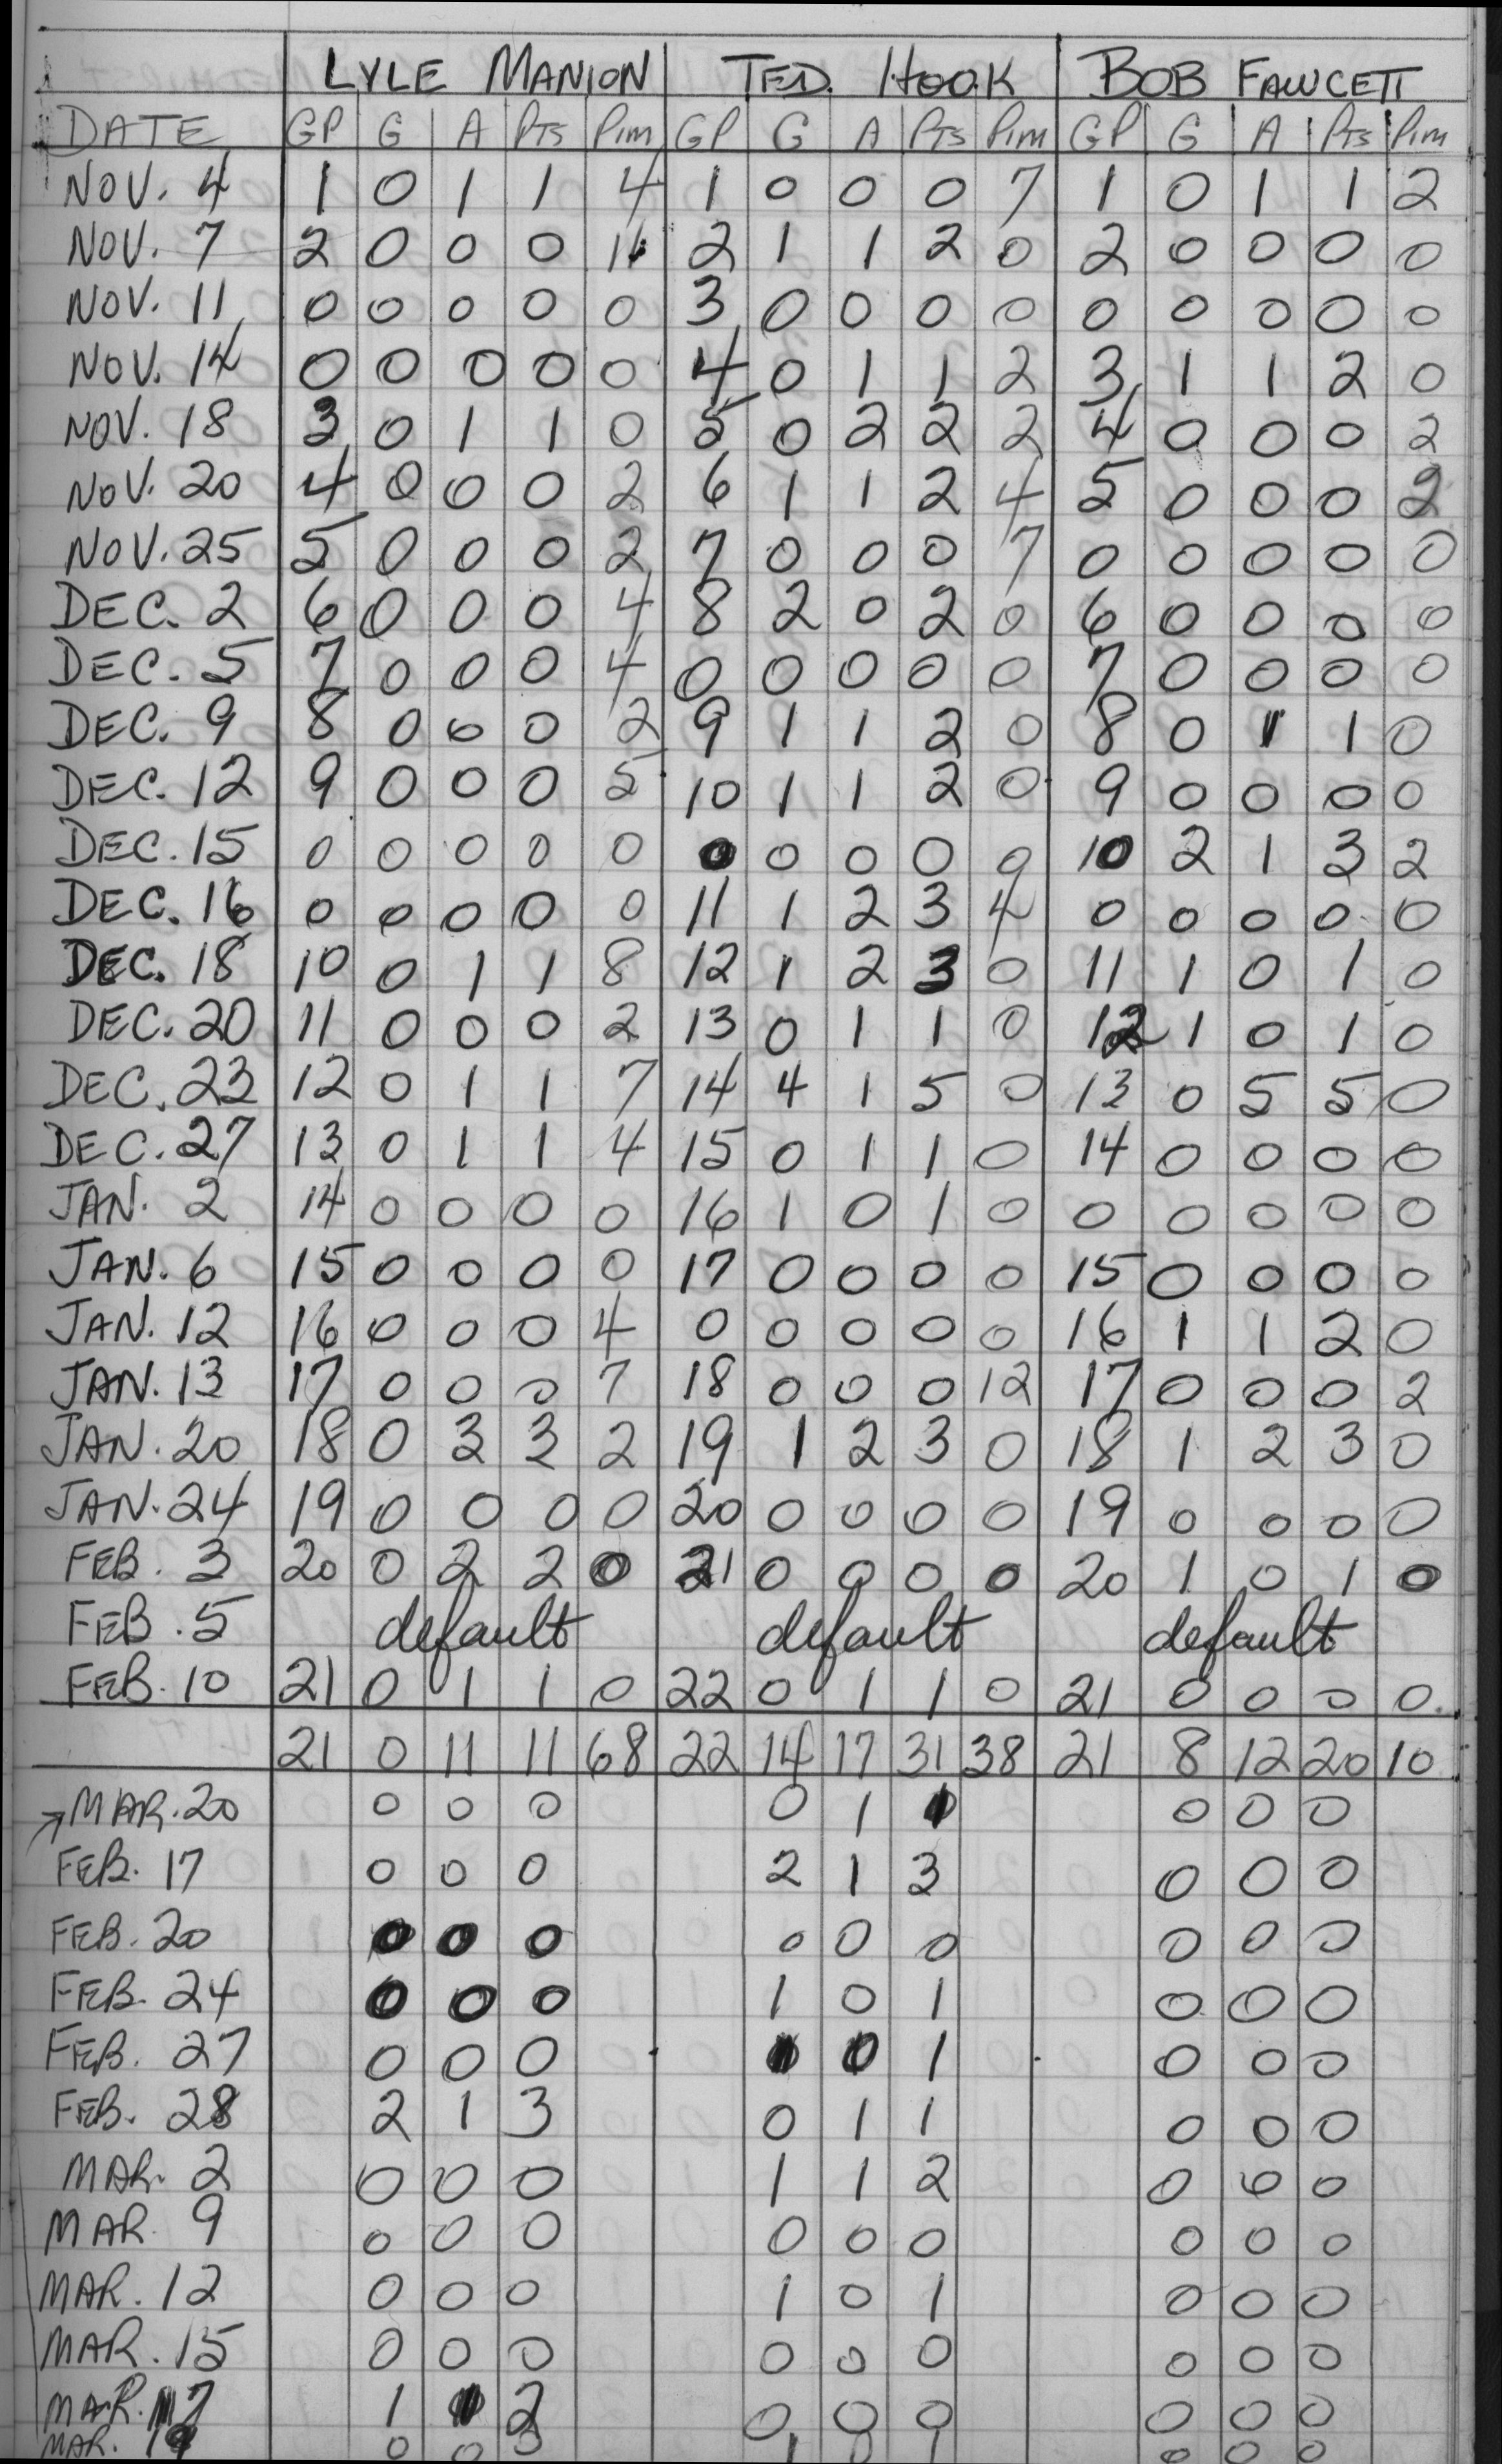 LYLE MANION TED. HOOK BOB FAWCETT
DATE GP G A PTS PIM GP G A PTS PIM GP G A PTS PIM
NOV. 4 1 0 1 1 4 1 0 0 0 7 1 0 1 1 2
NOV. 7 2 0 0 0 11 2 1 1 2 0 2 0 0 0 0
NOV. 11 0 0 0 0 0 3 0 0 0 0 0 0 0 0 0
NOV. 14 0 0 0 0 0 4 0 1 1 2 3 1 1 2 0
NOV. 18 3 0 1 1 0 5 0 2 2 2 4 0 0 0 2
NOV. 20 4 0 0 0 2 6 1 1 2 4 5 0 0 0 2
NOV. 25 5 0 0 0 2 7 0 0 0 7 0 0 0 0 0
DEC. 2 6 0 0 0 4 8 2 0 2 0 6 0 0 0 0
DEC. 5 7 0 0 0 4 0 0 0 0 0 7 0 0 0 0
DEC. 9 8 0 0 0 2 9 1 1 2 0 8 0 1 1 0
DEC. 12 9 0 0 0 5 10 1 1 2 0 9 0 0 0 0
DEC. 15 0 0 0 0 0 0 0 0 0 0 10 2 1 3 2
DEC. 16 0 0 0 0 0 11 1 2 3 4 0 0 0 0 0
DEC. 18 10 0 1 1 8 12 1 2 3 0 11 1 0 1 0
DEC. 20 11 0 0 0 2 13 0 1 1 0 12 1 0 1 0
DEC. 23 12 0 1 1 7 14 4 1 5 0 13 0 5 5 0
DEC. 27 13 0 1 1 4 15 0 1 1 0 14 0 0 0 0
JAN. 2 14 0 0 0 0 16 1 0 1 0 0 0 0 0 0
JAN. 6 15 0 0 0 0 17 0 0 0 0 15 0 0 0 0
JAN. 12 16 0 0 0 4 0 0 0 0 0 16 1 1 2 0
JAN. 13 17 0 0 0 7 18 0 0 0 12 17 0 0 0 2
JAN. 20 18 0 3 3 2 19 1 2 3 0 18 1 2 3 0
JAN. 24 19 0 0 0 0 20 0 0 0 0 19 0 0 0 0
FEB. 3 20 0 2 2 0 21 0 0 0 0 20 1 0 1 0
FEB. 5 default default default
FEB. 10 21 0 1 1 0 22 0 1 1 0 21 0 0 0 0
21 0 11 11 68 22 14 17 31 38 21 8 12 20 10
→ MAR. 20 0 0 0 0 1 1 0 0 0
FEB. 17 0 0 0 2 1 3 0 0 0
FEB. 20 0 0 0 0 0 0 0 0 0
FEB. 24 0 0 0 1 0 1 0 0 0
FEB. 27 0 0 0 1 0 1 0 0 0
FEB. 28 2 1 3 0 1 1 0 0 0
MAR. 2 0 0 0 1 1 2 0 0 0
MAR 9 0 0 0 0 0 0 0 0 0
MAR. 12 0 0 0 1 0 1 0 0 0
MAR. 15 0 0 0 0 0 0 0 0 0
MAR. 17 1 1 2 0 0 0 0 0 0
MAR. 19 0 0 0 1 0 1 0 0 0